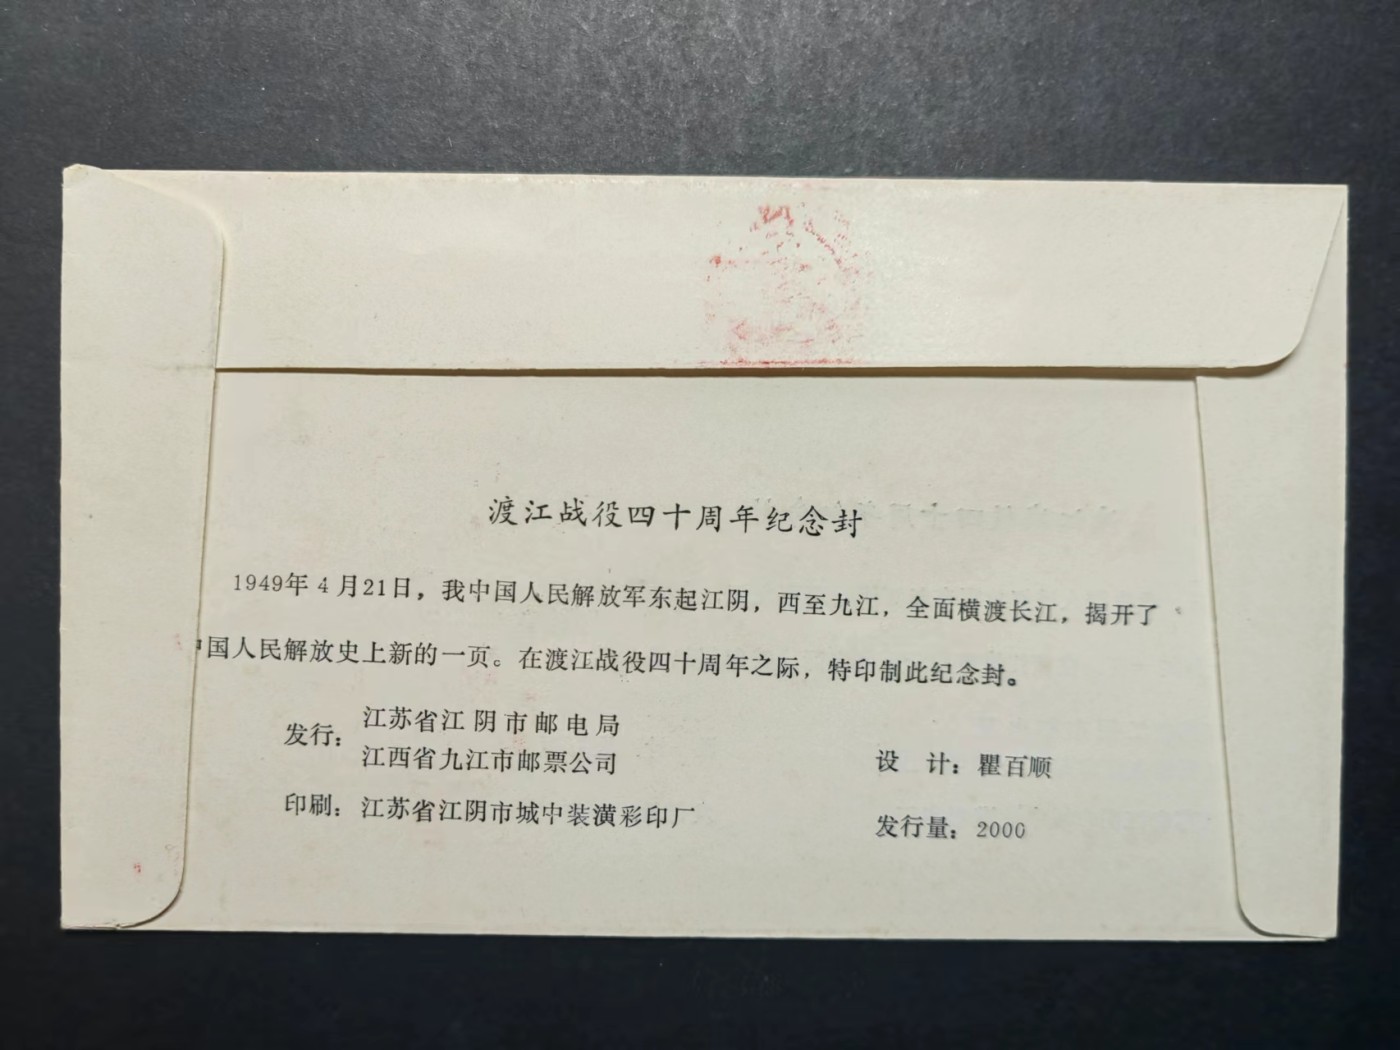 渡江战役四十周年纪念封
1949年4月21日，我中国人民解放军东起江阴，西至九江，全面横渡长江，揭开了
中国人民解放史上新的一页。在渡江战役四十周年之际，特印制此纪念封。
发行：江苏省江阴市邮电局
江西省九江市邮票公司
印刷：江苏省江阴市城中装潢彩印厂
设 计：瞿百顺
发行量：2000